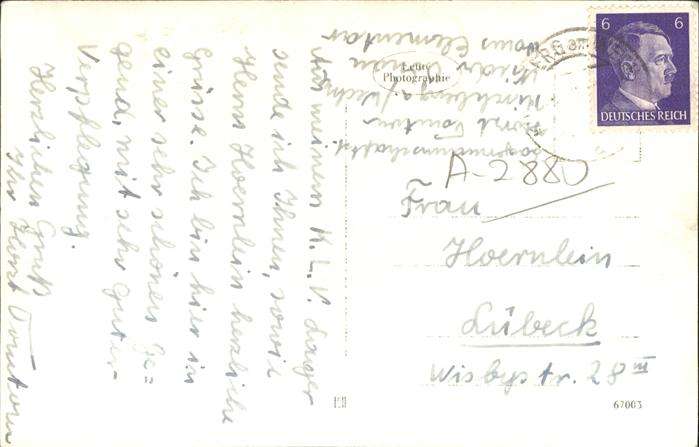 Aus meinem K. L. V. Lager
sende ich Ihnen, sowie
Herrn Hoernlein herzliche
Grüsse. Ich bin hier in
einer sehr schönen Ge=
gend, mit sehr guter
Verpflegung.
Herzlichen Gruß
Ihr Horst
Horst
Haus
Echte
Photographie
6 6
DEUTSCHES REICH
A-2880
Frau
Hoernlein
Lübeck
Wisbystr. 28 III
67003